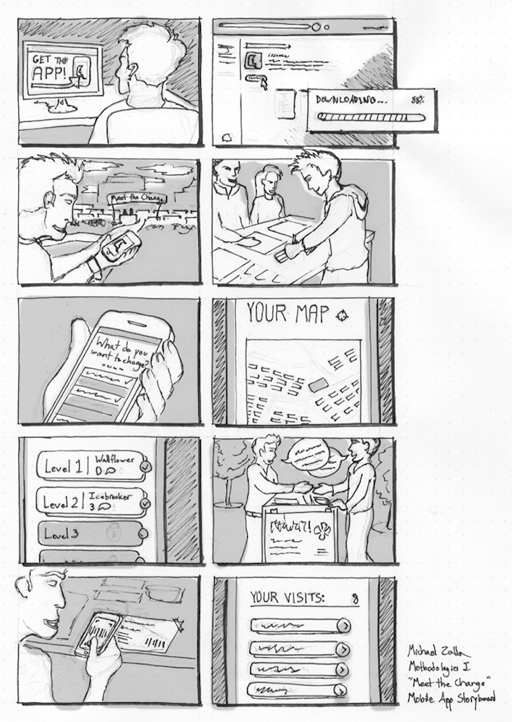 GET THE
APP!
DOWNLOADING... 58%
Meet the Change
What do you
want to change?
YOUR MAP
Level 1 | Wallflower
0
Level 2 | Icebreaker
3
Level 3
YOUR VISITS: 8
Michael Zalla
Methodologies I
"Meet the Change"
Mobile App Storyboard